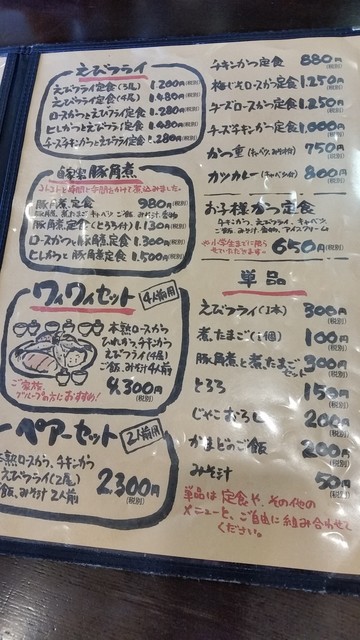 えびフライ
えびフライ定食(3尾) 1.200円(税別)
えびフライ定食(4尾) 1.480円(税別)
ロースかつとえび定食 1.280円(税別)
ヒレかつとえび定食 1.480円(税別)
チーズチキンかつとえび定食 1.280円(税別)
自家製 豚角煮
コトコト時間と手間をかけて煮込みました。
豚角煮定食 980円(税別)
豚角煮、煮たまご キャベツ ご飯 みそ汁、香物
豚角煮定食(とろろ付) 1.130円(税別)
ロースかつと豚角煮定食 1.300円(税別)
ヒレかつと豚角煮定食 1.500円(税別)
ワイワイセット 4人前用
本熟ロースかつ
ひれかつ、チキンかつ
えびフライ(4尾)
ご飯、みそ汁4人前
ご家族、
グループの方におすすめ!
4.300円(税別)
ペアーセット 2人前用
本熟ロースかつ、チキンかつ
えびフライ(2尾)
ご飯、みそ汁 2人前
2.300円(税別)
チキンかつ定食 880円(税別)
梅じそロースかつ定食 1.250円(税別)
チーズロースかつ定食 1.250円(税別)
チーズチキンかつ定食 1.000円(税別)
かつ重(キャベツ、みそ汁付) 750円(税別)
カツカレー(キャベツ付) 800円(税別)
お子様かつ定食
チキンかつ、えびフライ、キャベツ、
ご飯、みそ汁、香物、アイスクリーム
※小学生までに限らせていただきます。 650円(税別)
単品
えびフライ(1本) 300円(税別)
煮たまご(1個) 100円(税別)
豚角煮と煮たまごセット 300円(税別)
とろろ 150円(税別)
じゃこおろし 200円(税別)
かまどのご飯 200円(税別)
みそ汁 50円(税別)
単品は定食や、その他の
メニューと、ご自由に組み合わせて
ください。